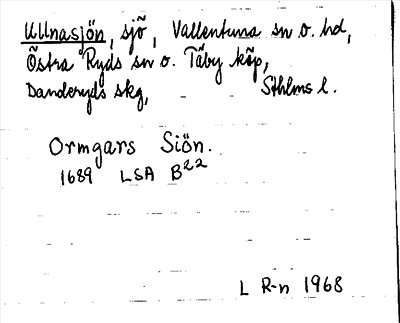 Ullnasjön, sjö, Vallentuna sn o. hd,
Östra Ryds sn o. Täby köp,
Danderyds skg, Sthlms l.
Ormgars Siön.
1689 LSA B22
L R-n 1968